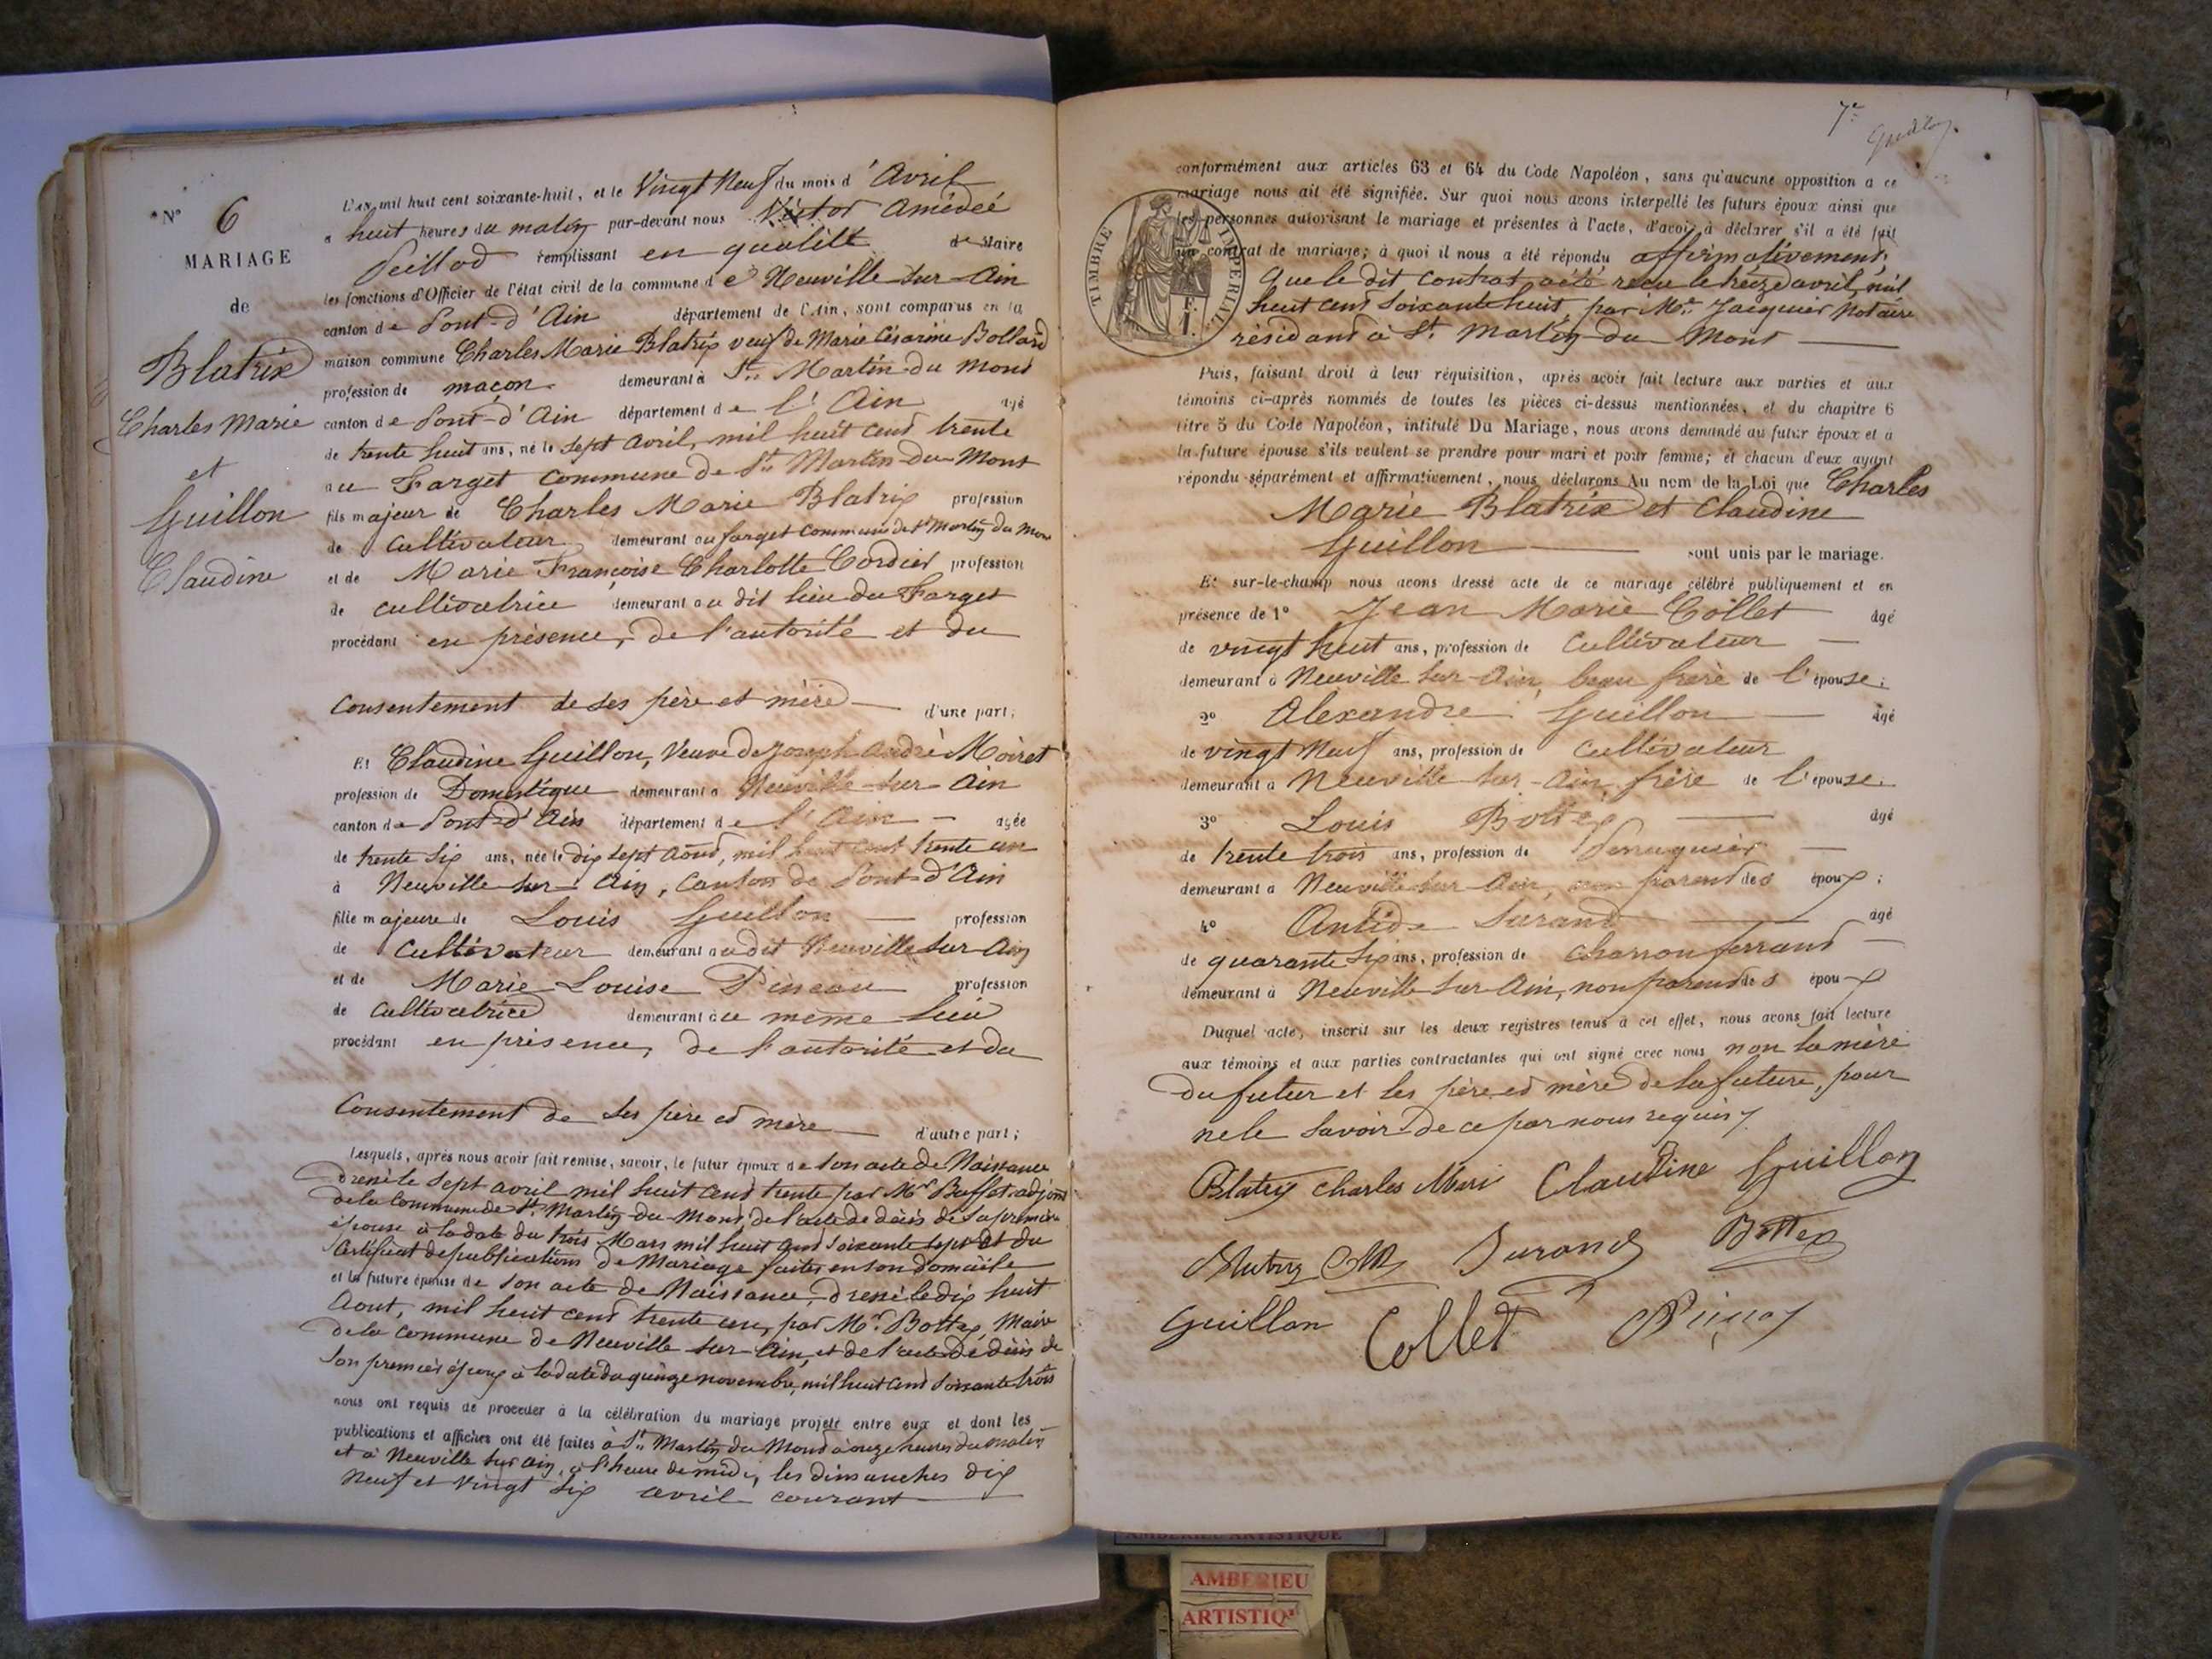 N° 6
MARIAGE
de
Blatrix
Charles Marie
et
Guillon
Claudine
L'an mil huit cent soixante-huit, et le Vingt Neuf du mois d'Avril
à huit heures du matin par-devant nous Victor Amédée
Peillod remplissant en qualité de Maire
les fonctions d'Officier de l'état civil de la commune de Neuville-sur-Ain
canton de Pont-d'Ain département de l'Ain, sont comparus en la
maison commune Charles Marie Blatrix veuf de Marie Césarine Bollard
profession de maçon demeurant à St. Martin-du Mont
canton de Pont-d'Ain département de l'Ain âgé
de trente huit ans, né le sept avril, mil huit cent trente
au Farget commune de St. Martin-du-Mont
fils majeur de Charles Marie Blatrix profession
de Cultivateur demeurant au farget commune de St Martin du Mont
et de Marie Françoise Charlotte Cordier profession
de cultivatrice demeurant au dit lieu du Farget
procédant en présence, de l'autorité et du
Consentement de ses père et mère d'une part;
Et Claudine Guillon, Veuve de Joseph André Moiret
profession de Domestique demeurant à Neuville-sur-Ain
canton de Pont-d'Ain département de l'Ain agée
de trente six ans, née le dix sept Août, mil huit cent trente un
à Neuville-sur-Ain, Canton de Pont-d'Ain
fille majeure de Louis Guillon profession
de Cultivateur demeurant audit Neuville sur Ain
et de Marie Louise profession
de Cultivatrice demeurant au même lieu
procédant en présence, de l'autorité et du
Consentement de ses père et mère d'autre part;
Lesquels, après nous avoir fait remise, savoir, le futur époux de son acte de Naissance
dressé le sept avril mil huit cent trente par Mr Buffet adjoint
de la Commune de St Martin-du-Mont, de l'acte de décès de sa première
épouse à la date du trois Mars mil huit cent soixante sept et du
Certificat de publications de Mariage faites en son domicile
et la future épouse de son acte de Naissance, dressé le dix huit
Aout, mil huit cent trente un, par Mr. Bottex, Maire
de la commune de Neuville sur-Ain, et de l'acte de décès de
son premier époux à la date du quinze novembre, mil huit cent soixante trois
nous ont requis de procéder à la célébration du mariage projeté entre eux et dont les
publications et affiches ont été faites à St Martin du Mont à onze heures du matin
et à Neuville sur Ain, à l'heure de midi, les dimanches dix
neuf et vingt six avril courant
7e
conformément aux articles 63 et 64 du Code Napoléon, sans qu'aucune opposition à ce
mariage nous ait été signifiée. Sur quoi nous avons interpellé les futurs époux ainsi que
les personnes autorisant le mariage et présentes à l'acte, d'avoir à déclarer s'il a été fait
un contrat de mariage; à quoi il nous a été répondu affirmativement,
Que le dit contrat a été reçu le treize avril, mil
huit cent soixante huit, par Me. Jacquier Notaire
résidant à St. Martin-du-Mont
TIMBRE IMPERIAL
Puis, faisant droit à leur réquisition, après avoir fait lecture aux parties et aux
témoins ci-après nommés de toutes les pièces ci-dessus mentionnées, et du chapitre 6
titre 5 du Code Napoléon, intitulé Du Mariage, nous avons demandé au futur époux et à
la future épouse s'ils veulent se prendre pour mari et pour femme; et chacun d'eux ayant
répondu séparément et affirmativement, nous déclarons Au nom de la Loi que Charles
Marie Blatrix et Claudine
Guillon sont unis par le mariage.
Et sur-le-champ nous avons dressé acte de ce mariage célébré publiquement et en
présence de 1° Jean Marie Collet âgé
de vingt huit ans, profession de Cultivateur
demeurant à Neuville sur-Ain, beau frère de l'épouse;
2° Alexandre Guillon âgé
de vingt Neuf ans, profession de Cultivateur
demeurant à Neuville sur-Ain frère de l'épouse.
3° Louis Bottex âgé
de trente trois ans, profession de Perruquier
demeurant à Neuville sur-Ain, non parent des époux;
4° Antide Durand âgé
de quarante six ans, profession de charron ferrant
demeurant à Neuville sur Ain, non parent des époux
Duquel acte, inscrit sur les deux registres tenus à cet effet, nous avons fait lecture
aux témoins et aux parties contractantes qui ont signé avec nous non la mère
du futur et les père et mère de la future, pour
ne le savoir de ce par nous requis
Blatrix charles Marie Claudine Guillon
Durand Bottex
Guillon Collet
AMBERIEU ARTISTIQUE
AMBERIEU
ARTISTIQ